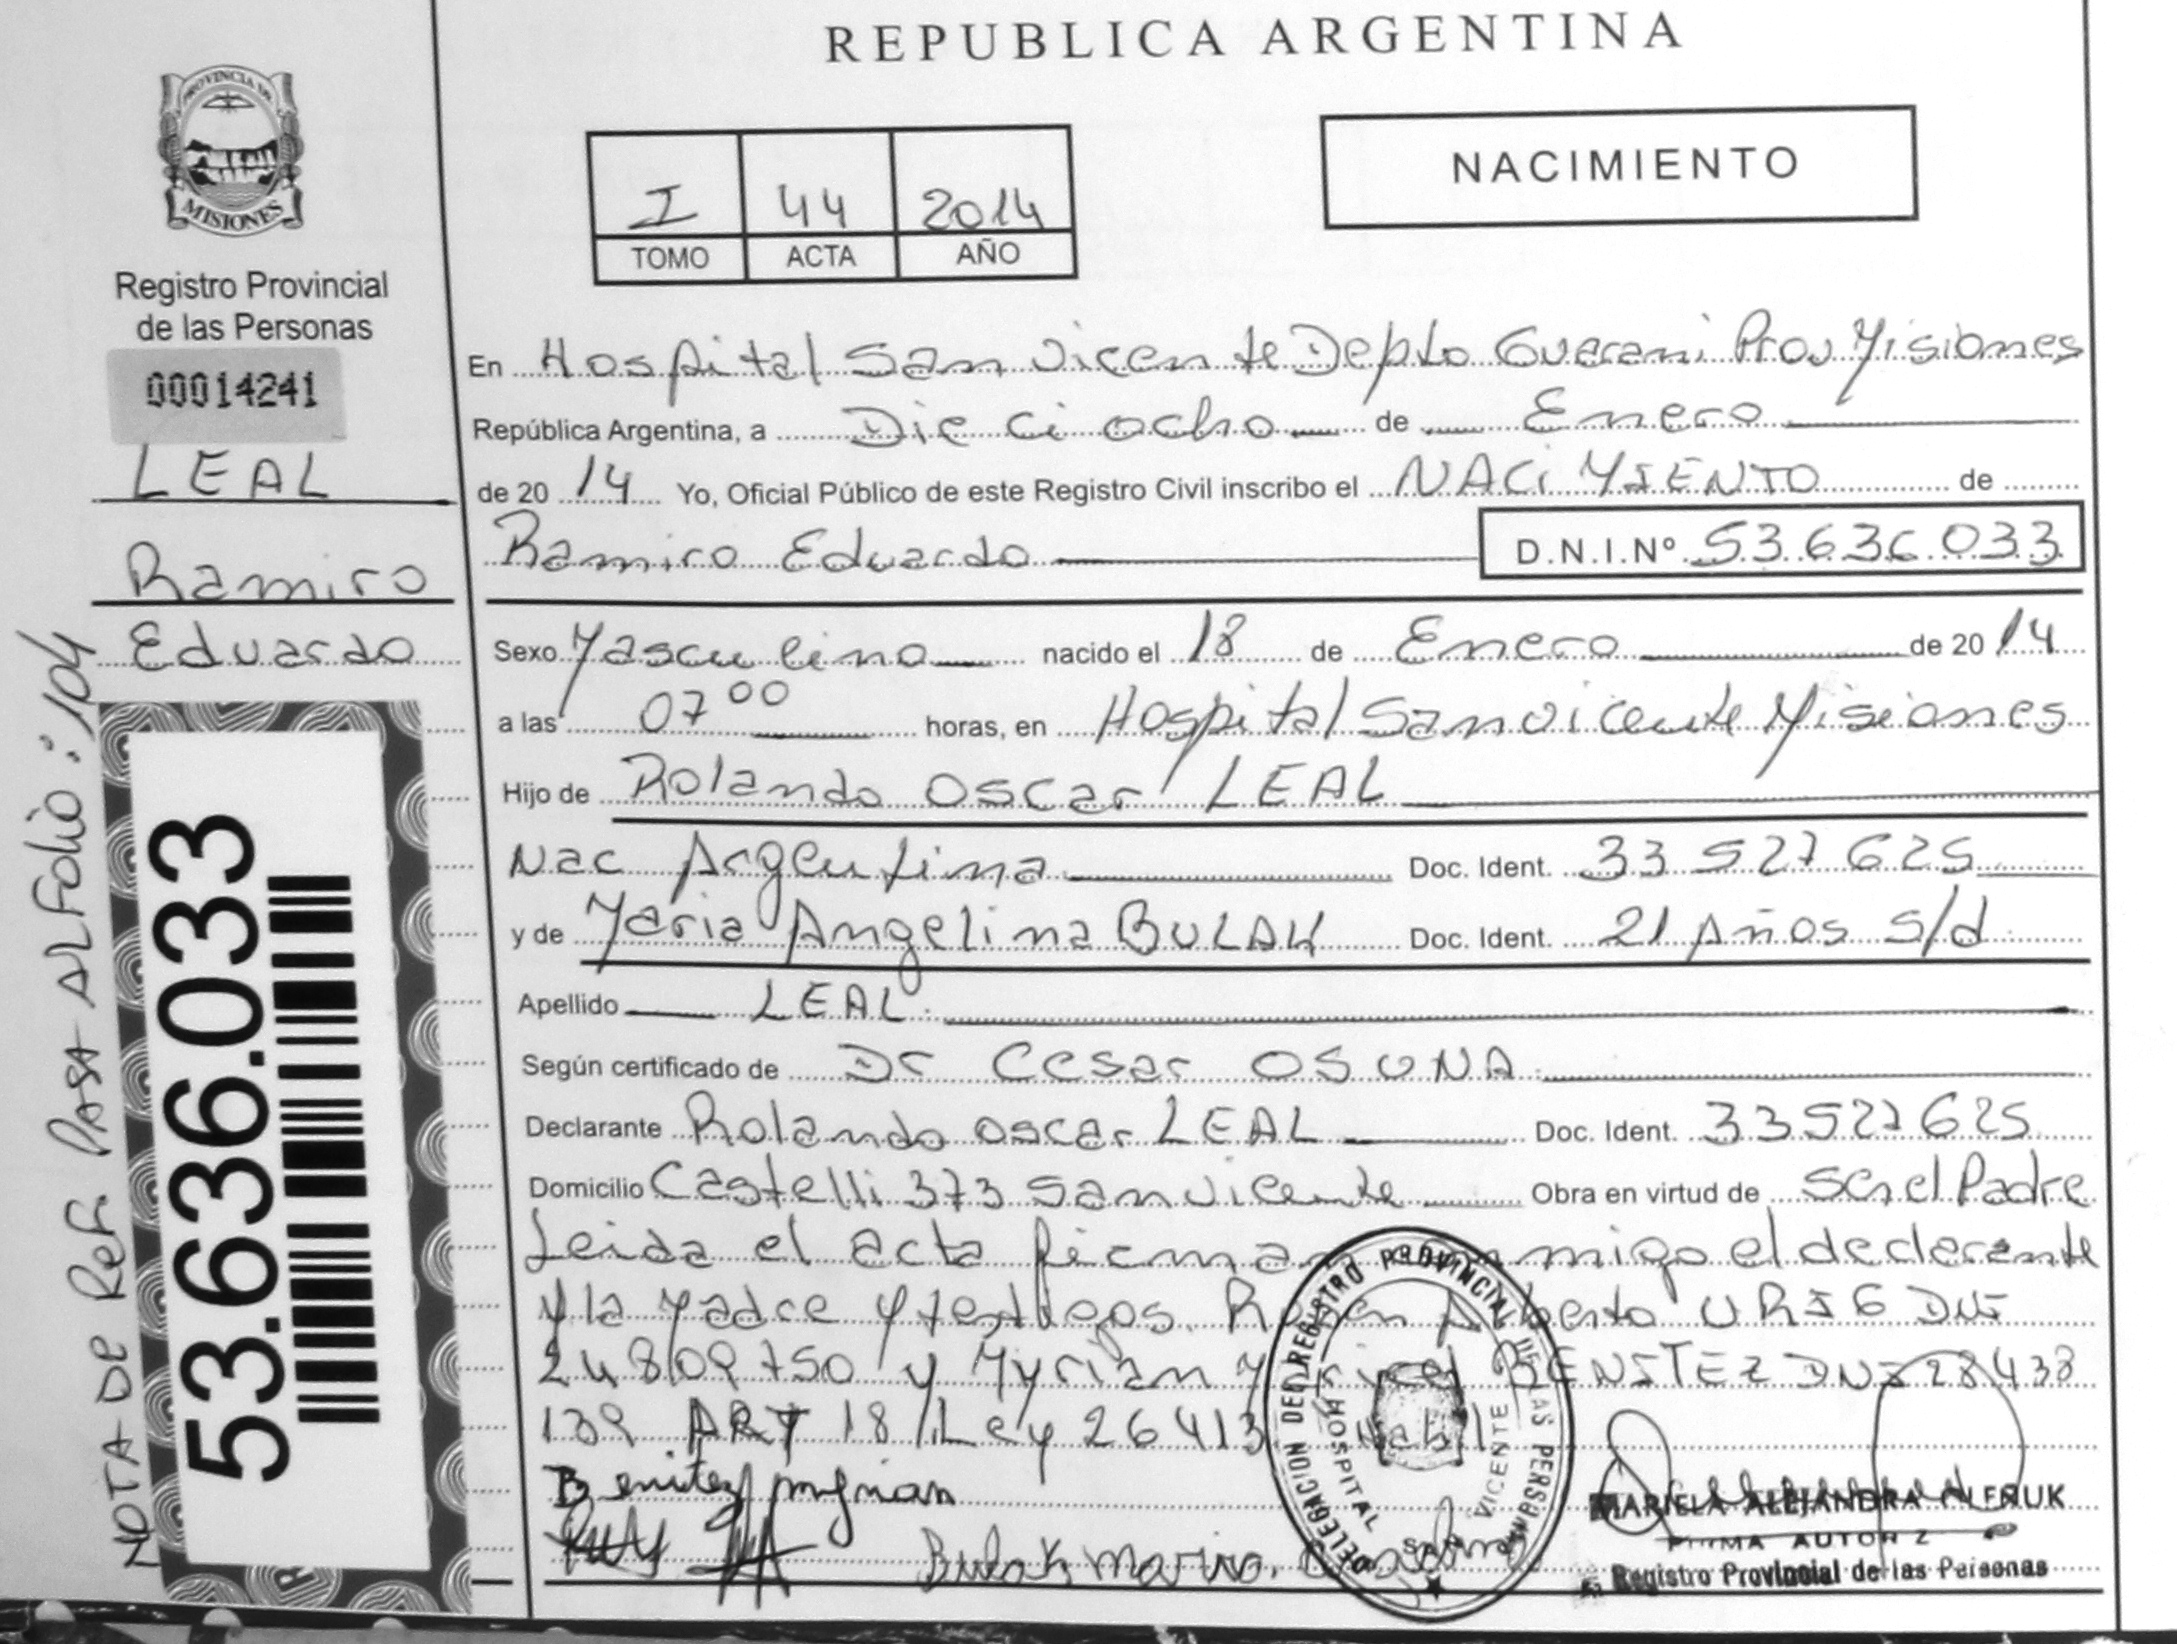 REPUBLICA ARGENTINA
PROVINCIA DE
MISIONES
Registro Provincial
de las Personas
00014241
LEAL
Ramiro
Eduardo
53.636.033
NOTA DE Ref. PASA AL Folio : 104
I 44 2014
TOMO ACTA AÑO
NACIMIENTO
En Hospital San Vicente Depto Guarani Prov Misiones
República Argentina, a Dieciocho de Enero
de 2014 Yo, Oficial Público de este Registro Civil inscribo el NACIMIENTO de
Ramiro Eduardo D.N.I.Nº 53.636.033
Sexo Masculino nacido el 18 de Enero de 2014
a las 07 00 horas, en Hospital San Vicente Misiones
Hijo de Rolando Oscar LEAL
Nac Argentina Doc. Ident. 33 527 625
y de Maria Angelina BULAK Doc. Ident. 21 Años s/d
Apellido LEAL
Según certificado de Dr Cesar OSUNA
Declarante Rolando Oscar LEAL Doc. Ident. 33527625
Domicilio Castelli 373 San Vicente Obra en virtud de ser el Padre
Leida el acta firman conmigo el declarante
y la Madre y testigos. Ruben Alberto URIG DNI
24809750 y Myrian BENITEZ DNI 28438
139 ART 18 Ley 26413
Benitez myrian
Bulak Maria
DELEGACION DEL REGISTRO PROVINCIAL DE LAS PERSONAS
HOSPITAL SAN VICENTE
MARIELA ALEJANDRA
Registro Provincial de las Personas